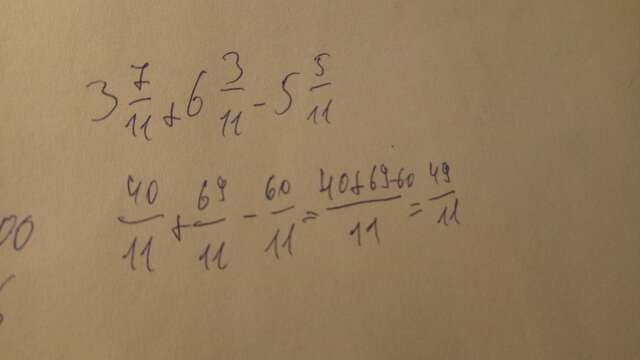 3 7/11 + 6 3/11 - 5 5/11
40/11 + 69/11 - 60/11 = 40+69-60/11 = 49/11
00